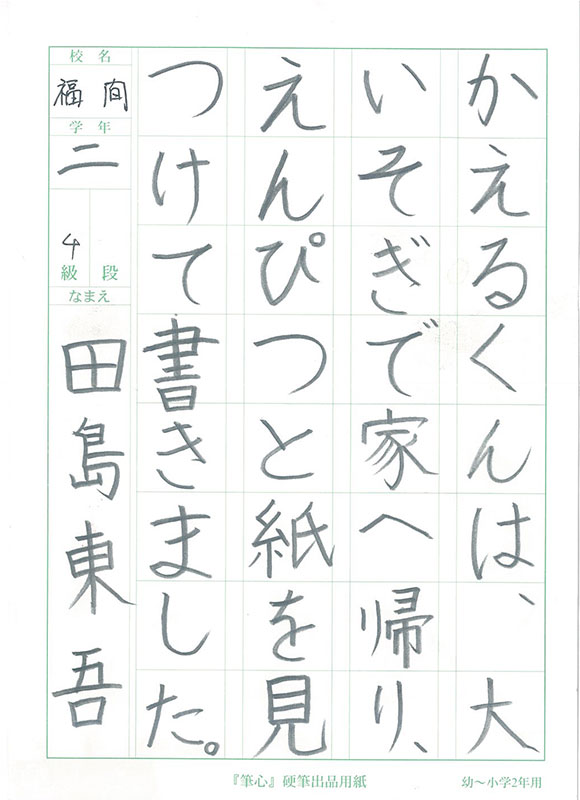 かえるくんは、大
いそぎで家へ帰り、
えんぴつと紙を見
つけて書きました。
校名
福間
学年
二
4
級 段
なまえ
田島東吾
『筆心』硬筆出品用紙
幼〜小学2年用